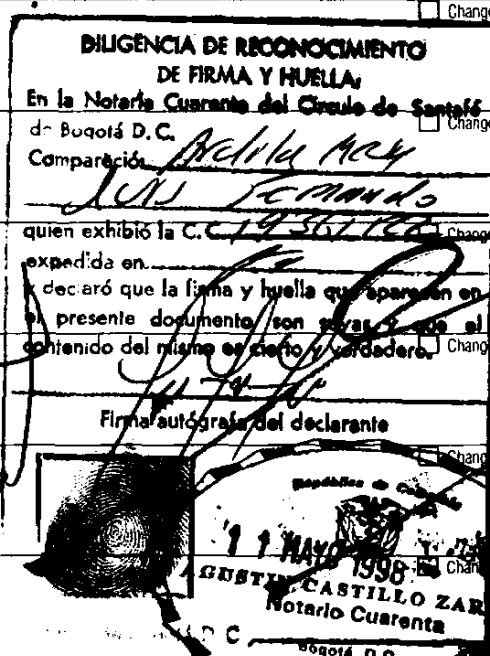 Change
DILIGENCIA DE RECONOCIMIENTO
DE FIRMA Y HUELLA
En la Notaría Cuarenta del Círculo de Santafé
de Bogotá D.C.
Change
Compareció Ardila
Luis Fernando
quien exhibió la C.C.
Change
expedida en
y declaró que la firma y huella que aparecen en
el presente documento, son suyas y que el
contenido del mismo es cierto y verdadero.
Change
Firma autógrafa del declarante
Change
República de Colombia
11 MAYO 1998
Change
AGUSTIN CASTILLO ZAR
Notario Cuarenta
D C
Bogotá D.C.